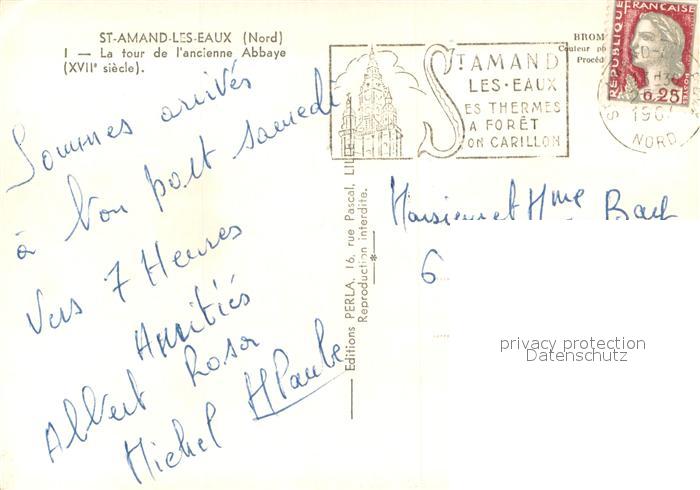 ST-AMAND-LES-EAUX (Nord)
I — La tour de l'ancienne Abbaye
(XVIIe siècle).
Sommes arrivés
à bon port samedi
vers 7 Heures
Amitiés
Albert Rosa
Michel
Editions PERLA, 16, rue Pascal, LILLE
Reproduction interdite.
ST AMAND
LES·EAUX
SES THERMES
SA FORÊT
SON CARILLON
BROM
Couleur
Procéd
REPUBLIQUE FRANÇAISE
0,25
196
NORD
Monsieur et Mme
6
privacy protection
Datenschutz